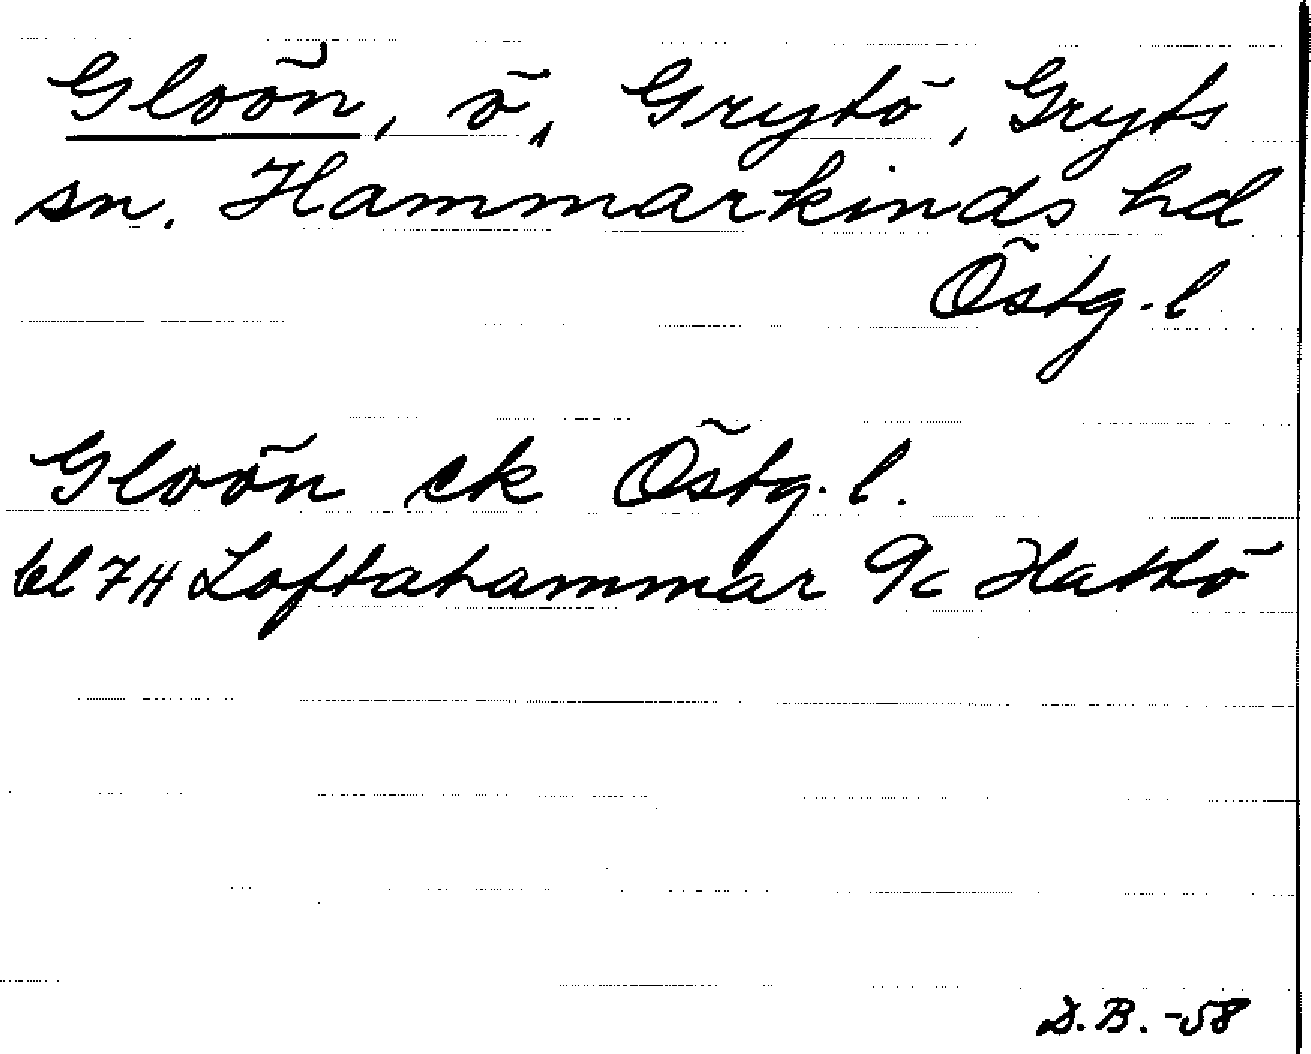 Gloön, ö, Grytö, Gryts
sn. Hammarkinds hd
Östg. l
Gloön ek Östg. l.
bl 7H Loftahammar 9c Hattö
S.B. -58